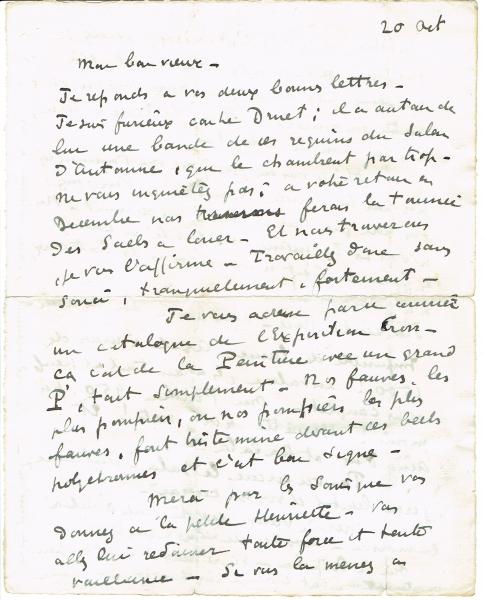 20 Oct
Mon bon vieux -
Je reponds a vos deux bonnes lettres -
Je suis furieux contre Druet ; il a autour de
lui une bande de ces requins du Salon
D'Automne, que le chambrent par trop -
ne vous inquiétez pas ; a votre retour en
Decembre nous ferons la tournée
Des Salles a louer - Et nous trouverons
je vous l'affirme - Travaillez donc sans
Souci, tranquillement, fortement -
Je vous adresse par ce courrier
un catalogue de l'Exposition Cross -
ça c'est de la Peinture avec un grand
P, tout simplement - Nos fauves, les
plus pompiers, ou nos pompiers les plus
fauves, font triste mine devant ces belles
polychromies et c'est bon signe -
Merci pour les soins que vous
Donnez a la petite Henriette - Vous
allez lui redonner toute force et toute
vaillance - Si vous la menez a